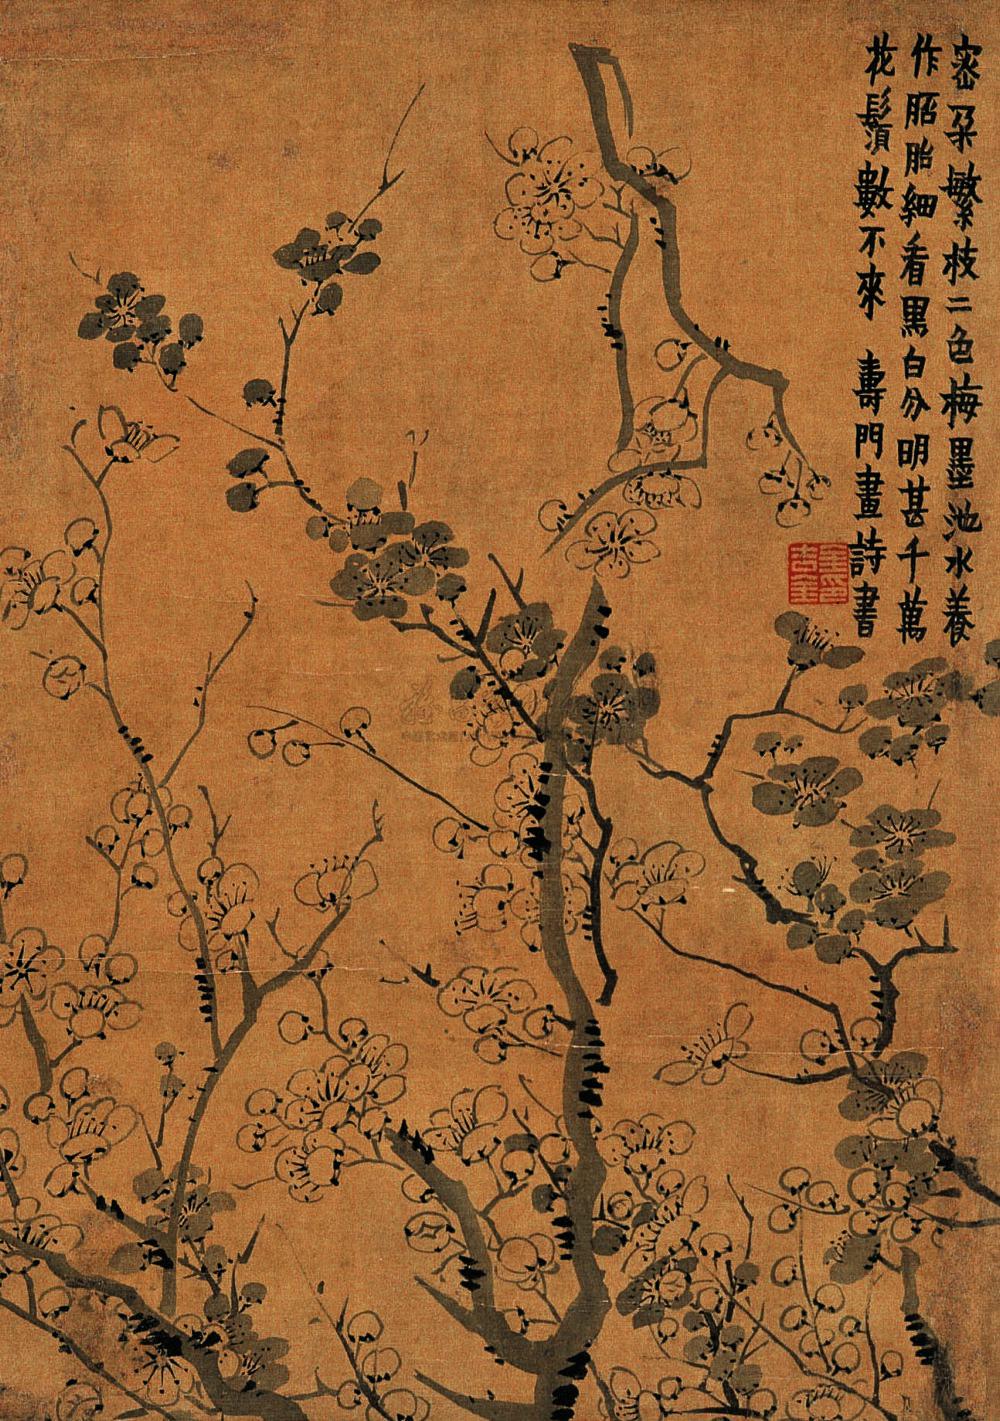 密朵繁枝二色梅墨池水養
作胚胎細看黑白分明甚千萬
花鬚數不來 壽門畫詩書